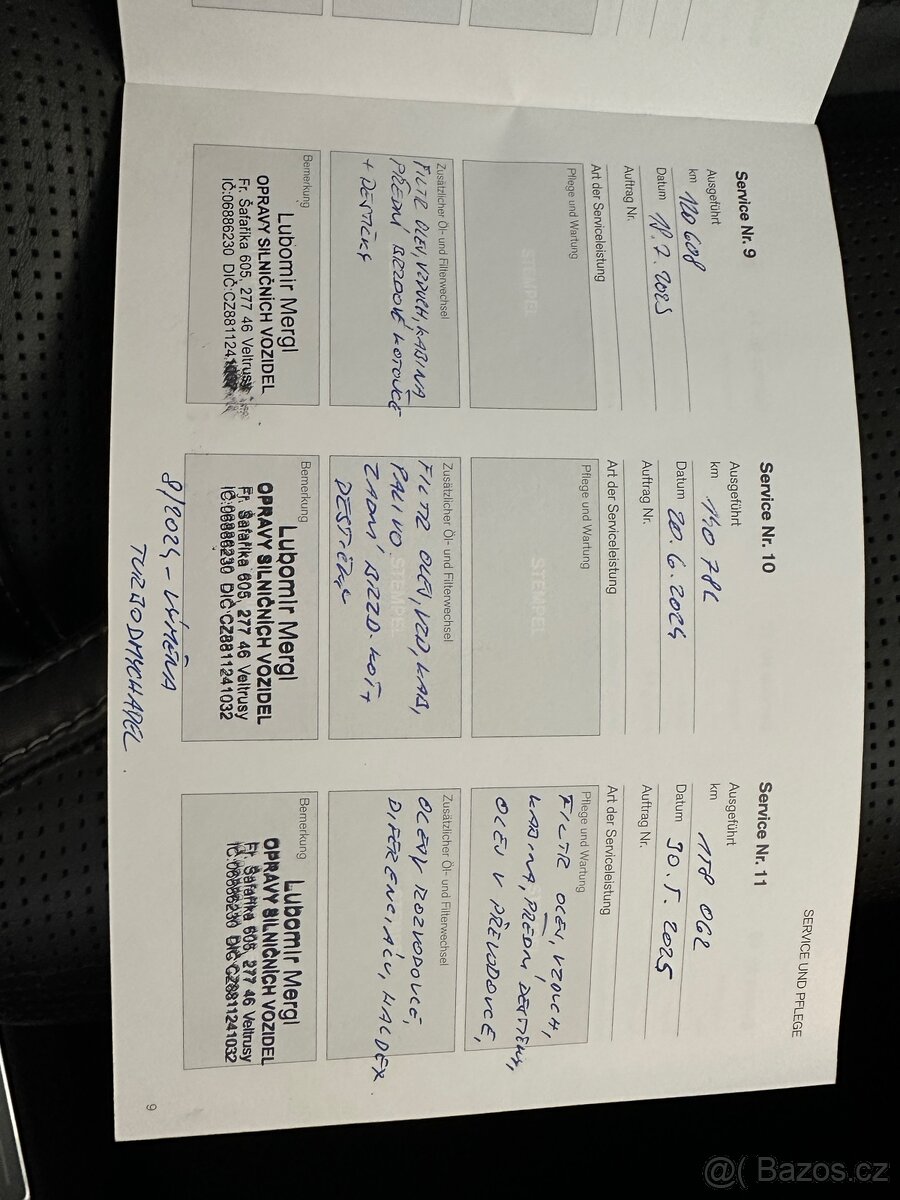 SERVICE UND PFLEGE
Service Nr. 9
Ausgeführt
km 120 608
Datum 18.7.2023
Auftrag Nr.
Art der Serviceleistung
Pflege und Wartung
STEMPEL
Zusätzlicher Öl- und Filterwechsel
FILTR OLEJ, VZDUCH, KABINA
PŘEDNÍ BRZDOVÉ KOTOUČE
+ DESTIČKY
Bemerkung
Lubomír Mergl
OPRAVY SILNIČNÍCH VOZIDEL
Fr. Šafaříka 605, 277 46 Veltrusy
IČ:06886230 DIČ:CZ881124
Service Nr. 10
Ausgeführt
km 140 782
Datum 20.6.2024
Auftrag Nr.
Art der Serviceleistung
Pflege und Wartung
STEMPEL
Zusätzlicher Öl- und Filterwechsel
FILTR OLEJ, VZD, KAB,
PALIVO.
ZADNÍ BRZD. KOT+
DESTIČKY
STEMPEL
Bemerkung
Lubomír Mergl
OPRAVY SILNIČNÍCH VOZIDEL
Fr. Šafaříka 605, 277 46 Veltrusy
IČ:06886230 DIČ:CZ8811241032
8/2024 - VÝMĚNA
TURBODMYCHADEL
Service Nr. 11
Ausgeführt
km 158 062
Datum 30.5.2025
Auftrag Nr.
Art der Serviceleistung
Pflege und Wartung
FILTR OLEJ, VZDUCH,
KABINA, PŘEDNÍ DESTIČKY,
OLEJ V PŘEVODOVCE,
Zusätzlicher Öl- und Filterwechsel
OLEJY ROZVODOVCE,
DIFERENCIÁLU, HALDEX
Bemerkung
Lubomír Mergl
OPRAVY SILNIČNÍCH VOZIDEL
Fr. Šafaříka 605, 277 46 Veltrusy
IČ:06886230 DIČ:CZ8811241032
9
@( Bazos.cz